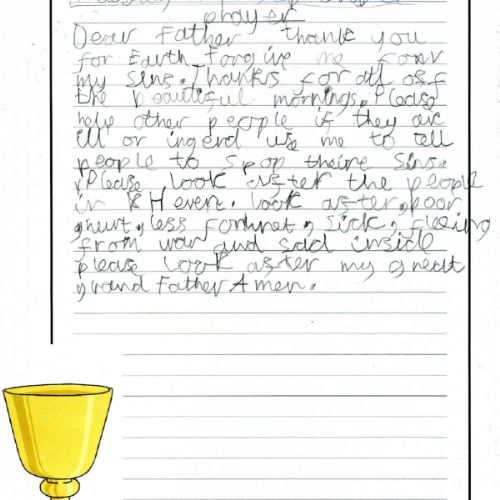 prayer
Dear Father thank you
for Earth forgive me for
my Sins. Thanks for all of
the beautiful mornings. Please
help other people if they are
ill or ingerd use me to tell
people to stop theire Sins.
Please look after the people
in Heven. look after, poor
, less fortnet, sick, fleeing
from war and sad inside
please look after my great
grand Father Amen.